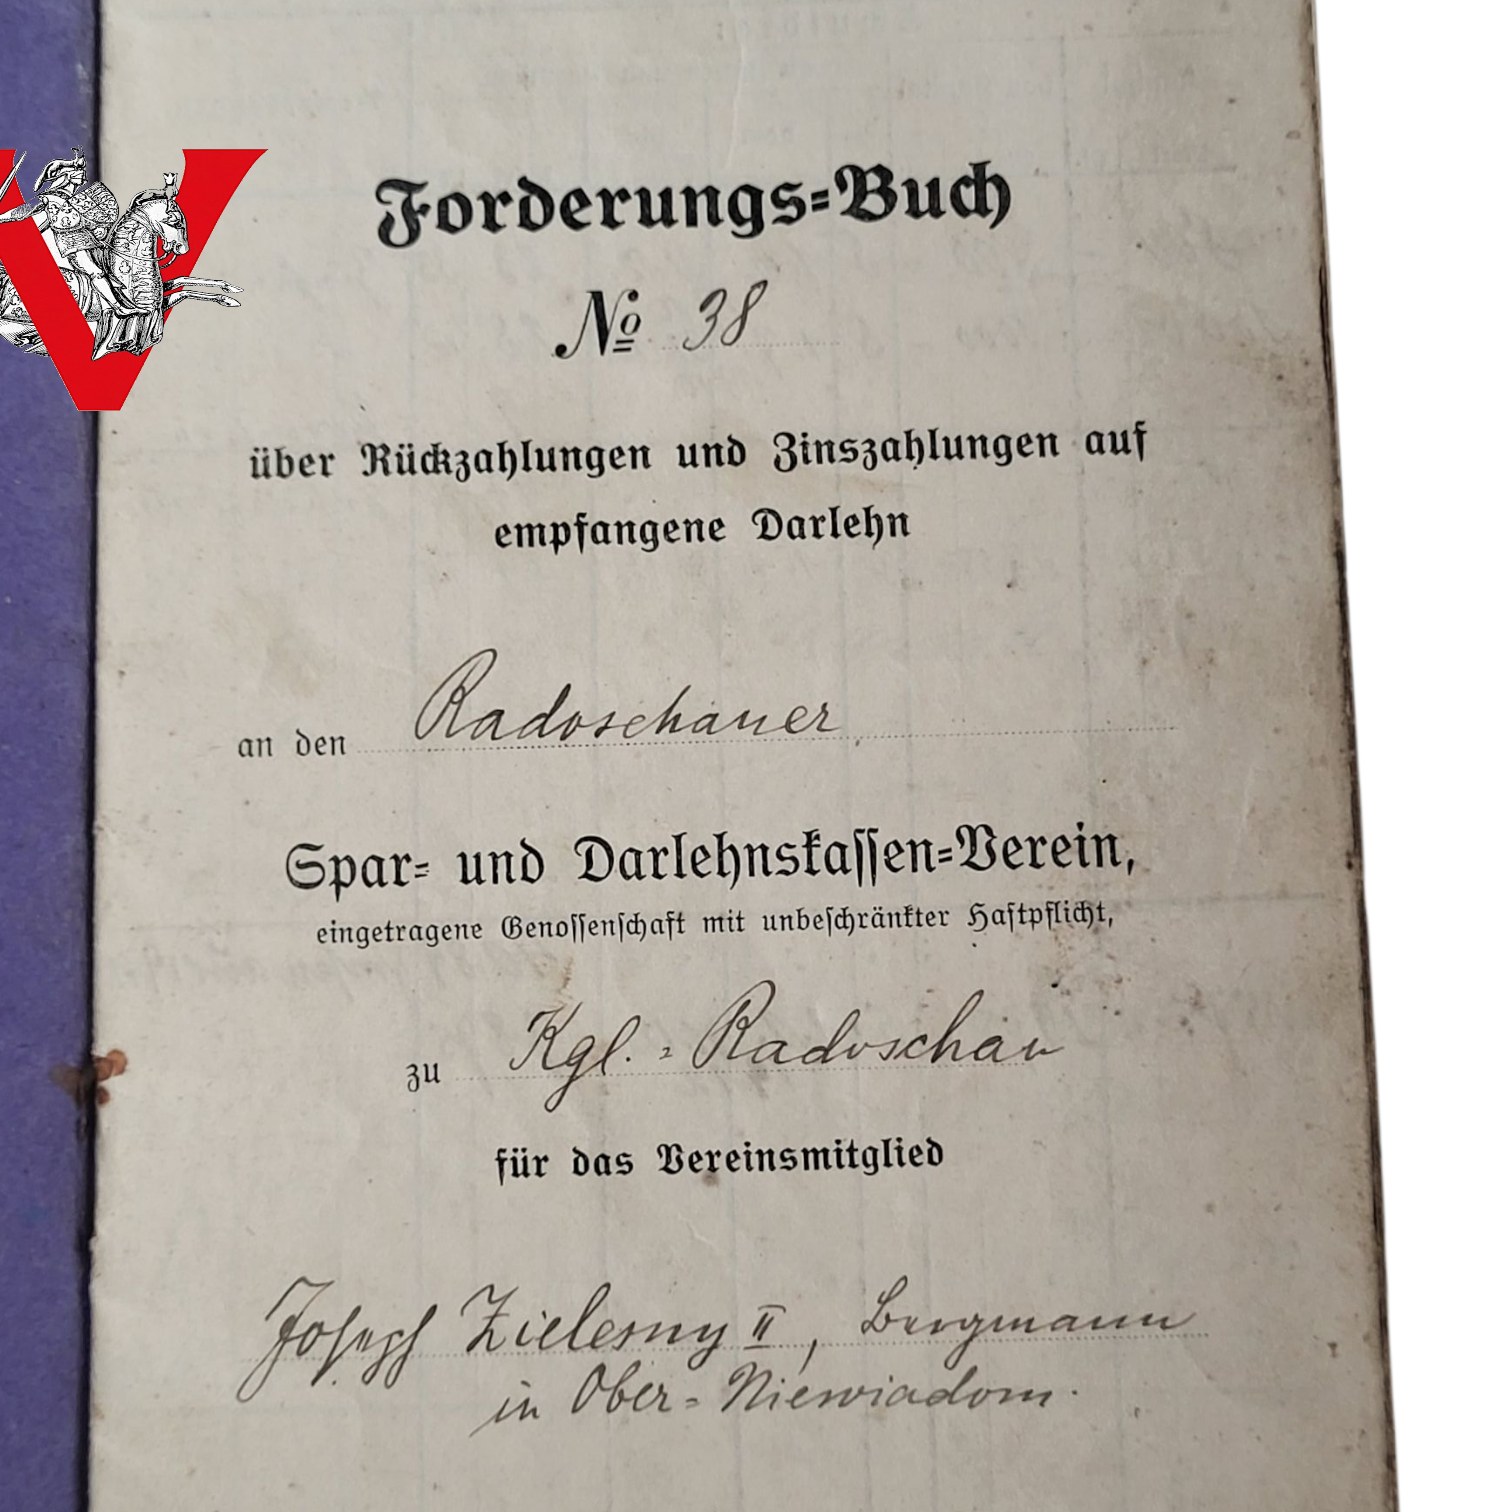 Forderungs=Buch
No 38
über Rückzahlungen und Zinszahlungen auf
empfangene Darlehn
an den Radoschauer
Spar= und Darlehnskassen=Verein,
eingetragene Genossenschaft mit unbeschränkter Haftpflicht,
zu Kgl.=Radoschau
für das Vereinsmitglied
Joseph Zielesny II, Bergmann
in Ober=Niewiadom.
V